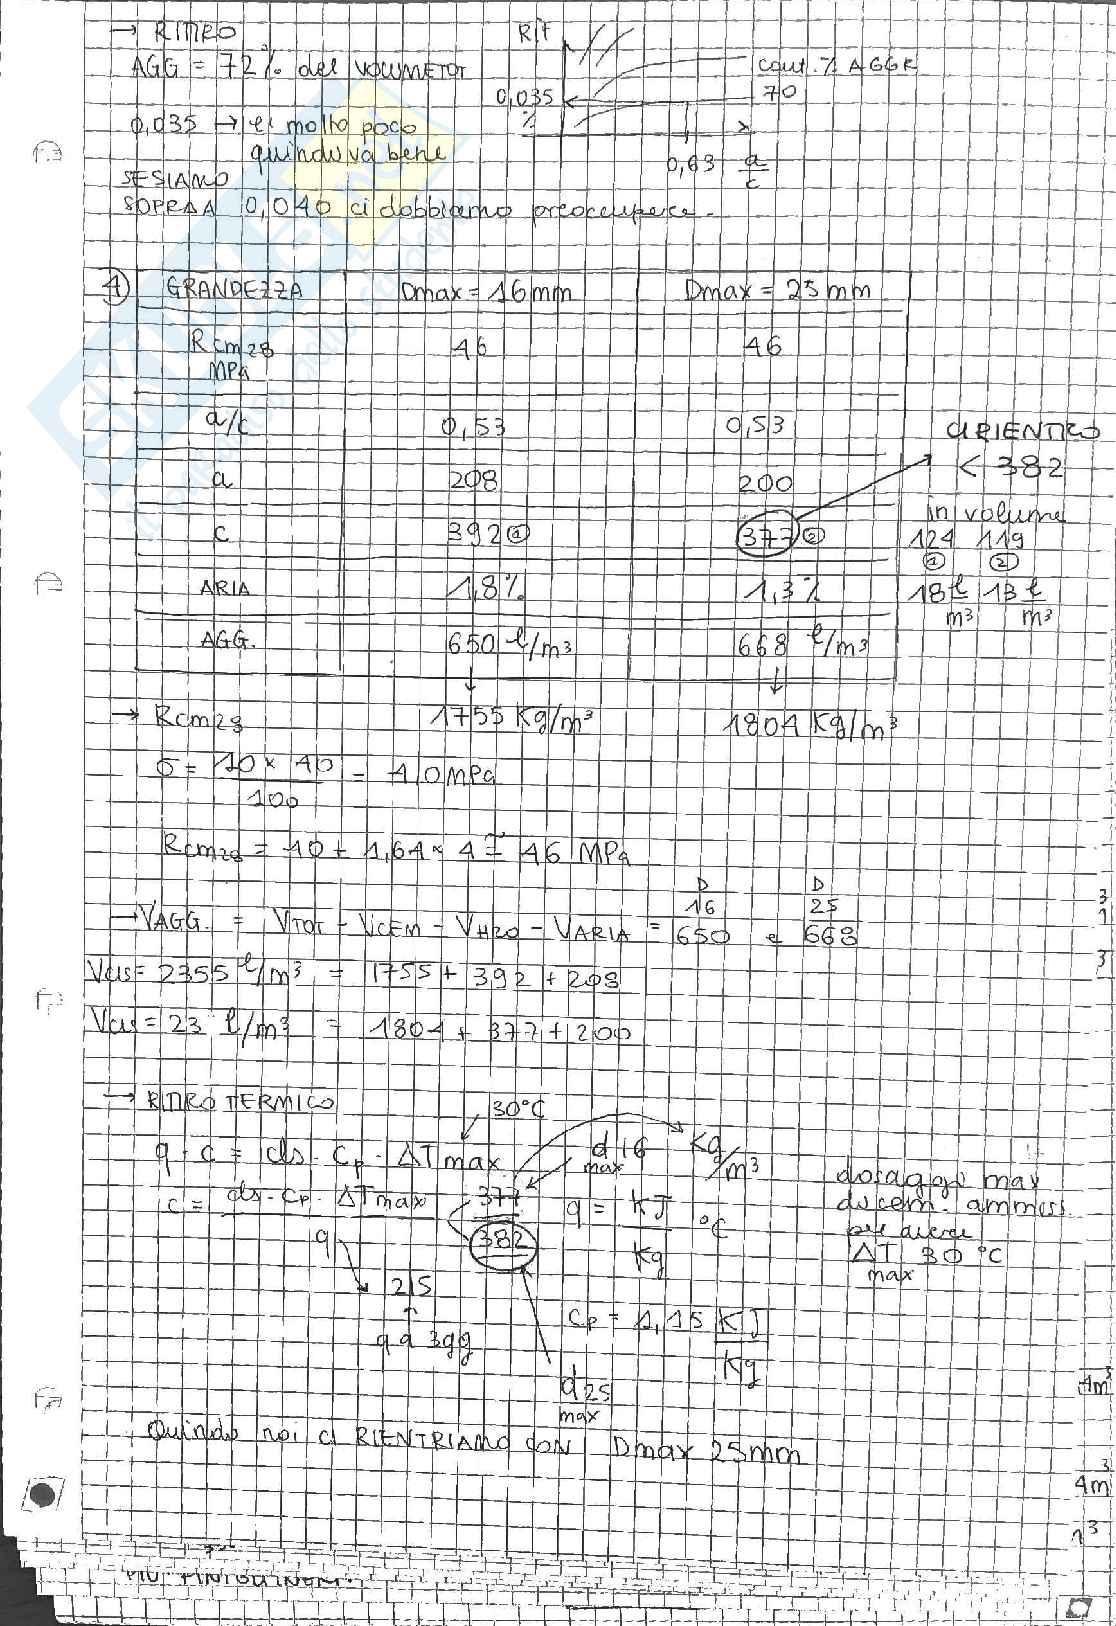 → RITIRO
AGG = 72% del VOLUME TOT
0,035 → è molto poco
quindi va bene
SE SIAMO
SOPRA A 0,040 ci dobbiamo preoccupare.
RIT
cont. % AGGR
70
0,035
%
0,63 a/c
1 GRANDEZZA Dmax = 16mm Dmax = 25mm
Rcm28 46 46
MPa
a/c 0,53 0,53
CI RIENTRO
< 382
a 208 200
in volume
c 392 1 377 2 124 119
1 2
ARIA 1,8% 1,3% 18 l/m³ 13 l/m³
AGG. 650 l/m³ 668 l/m³
↓ ↓
→ Rcm28 1755 Kg/m³ 1804 Kg/m³
σ = 10 × 40 / 100 = 40 MPa
Rcm28 = 40 + 1,64 × 4 = 46 MPa
D D
16 25
→ VAGG. = VTOT - VCEM - VH2O - VARIA = 650 e 668
Vcls = 2355 l/m³ = 1755 + 392 + 208
Vcls = 23 l/m³ = 1804 + 377 + 200
→ RITIRO TERMICO
30°C
q · c = cls · cp · ΔTmax
c = cls · cp · ΔTmax / q
377
382
d16
max
Kg/m³
q = KJ/Kg °C
dosaggio max
di cem. ammiss.
per avere
ΔT 30 °C
max
215
↑
q a 3gg
cp = 1,15 KJ/Kg
d25
max
Quindi noi ci RIENTRIAMO CON Dmax 25mm